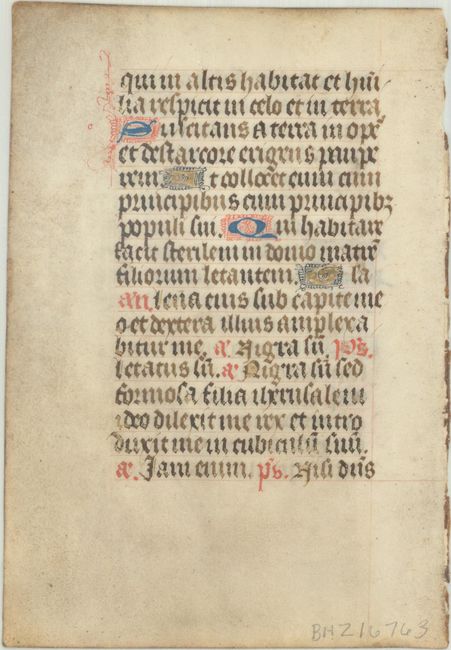 qui in altis habitat et hūi
lia respicit in celo et in terra
Suscitans a terra inopē
et de starcore erigens paupe
rem Ut collocet eum cum
principibus cum principibꝫ
populi sui. Qui habitare
facit sterilem in domo matrē
filiorum letantem. la
an. Leua eius sub capite me
o et dextera illius amplexa
bitur me. a Nigra sū. ps.
letatus sū. a Nigra sū sed
formosa filia iherusalem
ideo dilexit me rex et intro
duxit me in cubiculū suū.
a. Jam enim. ps. Nisi dūs
BNZ16763